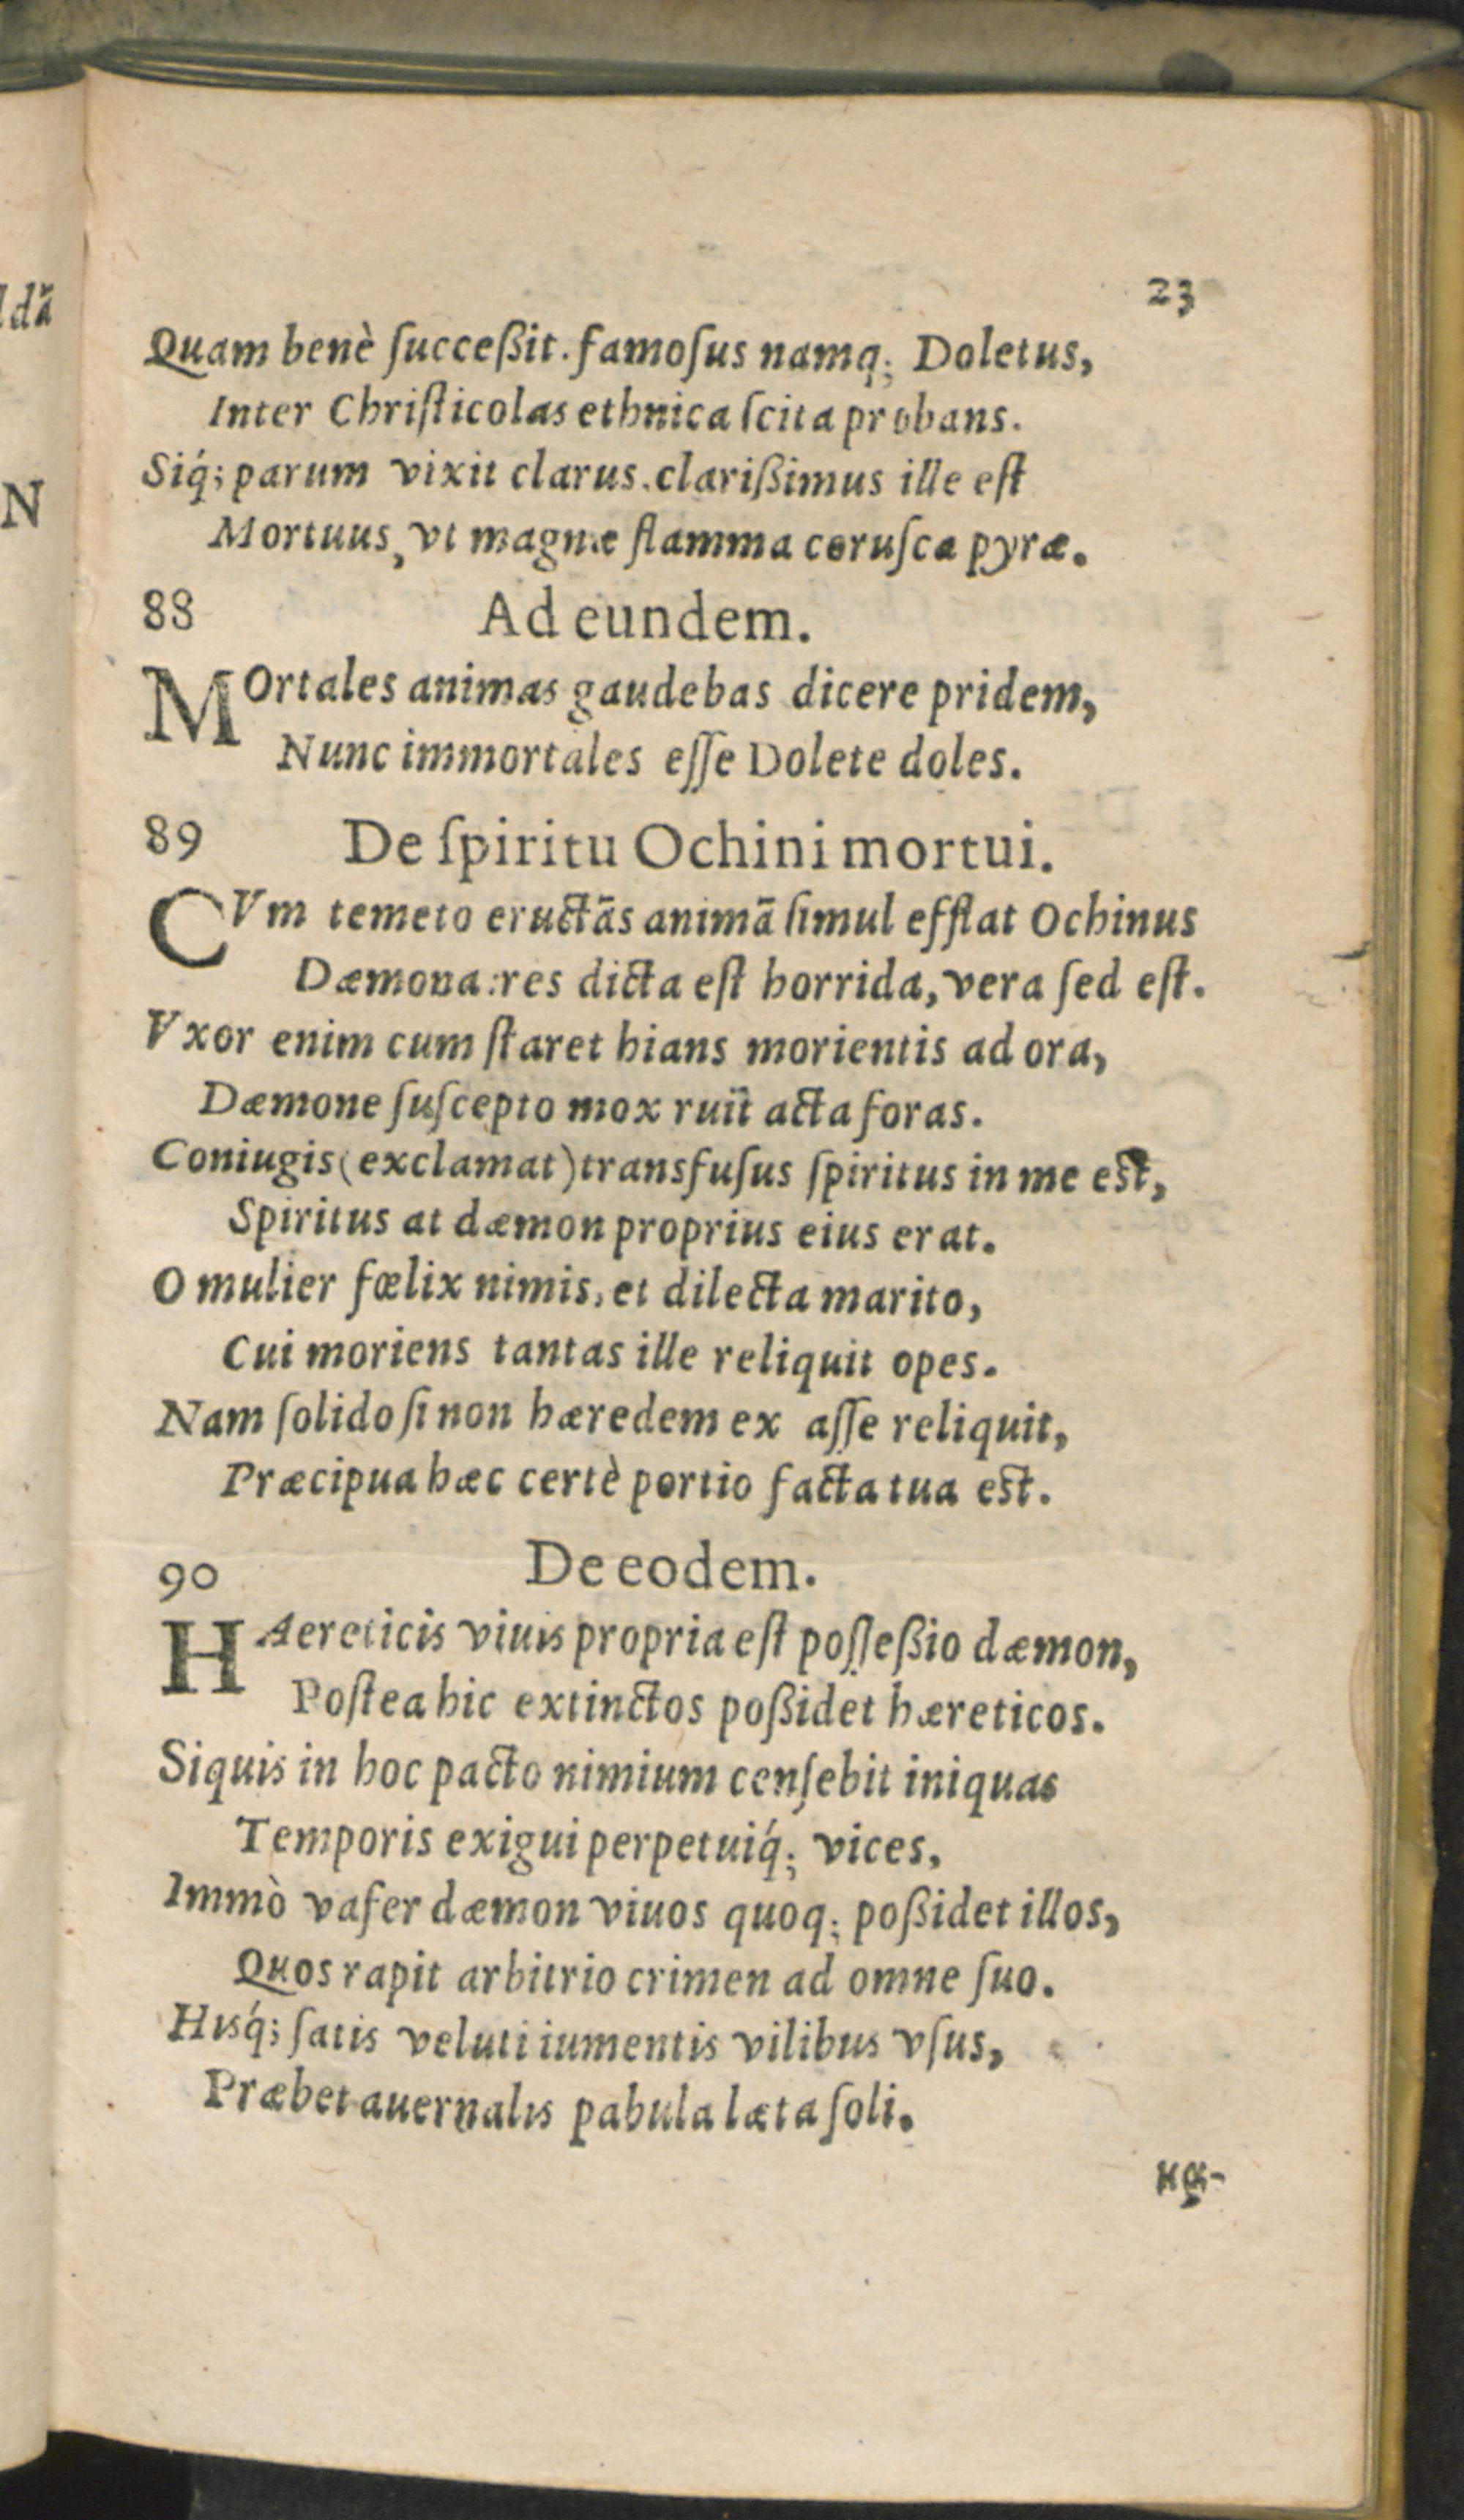 23
Quam benè ſucceßit. famoſus namq; Doletus,
Inter Chriſticolas ethnica ſcita probans.
Siq́; parum vixit clarus. clarißimus ille eſt
Mortuus, vt magnæ flamma coruſca pyræ.
88 Ad eundem.
MOrtales animas gaudebas dicere pridem,
Nunc immortales eſſe Dolete doles.
89 De ſpiritu Ochini mortui.
CVm temeto eructãs animã ſimul efflat Ochinus
Dæmona: res dicta eſt horrida, vera ſed eſt.
Vxor enim cum ſtaret hians morientis ad ora,
Dæmone ſuſcepto mox ruït acta foras.
Coniugis (exclamat) transfuſus ſpiritus in me est,
Spiritus at dæmon proprius eius erat.
O mulier fœlix nimis, et dilecta marito,
Cui moriens tantas ille reliquit opes.
Nam ſolido ſi non hæredem ex aſſe reliquit,
Præcipua hæc certè portio facta tua est.
90 De eodem.
HAereticis viuis propria eſt poſſeßio dæmon,
Poſtea hic extinctos poßidet hæreticos.
Siquis in hoc pacto nimium cenſebit iniquas
Temporis exigui perpetuiq́; vices,
Immò vafer dæmon viuos quoq; poßidet illos,
Quos rapit arbitrio crimen ad omne ſuo.
Hisq́; ſatis veluti iumentis vilibus vſus,
Præbet auernalis pabula læta ſoli.
dã
N